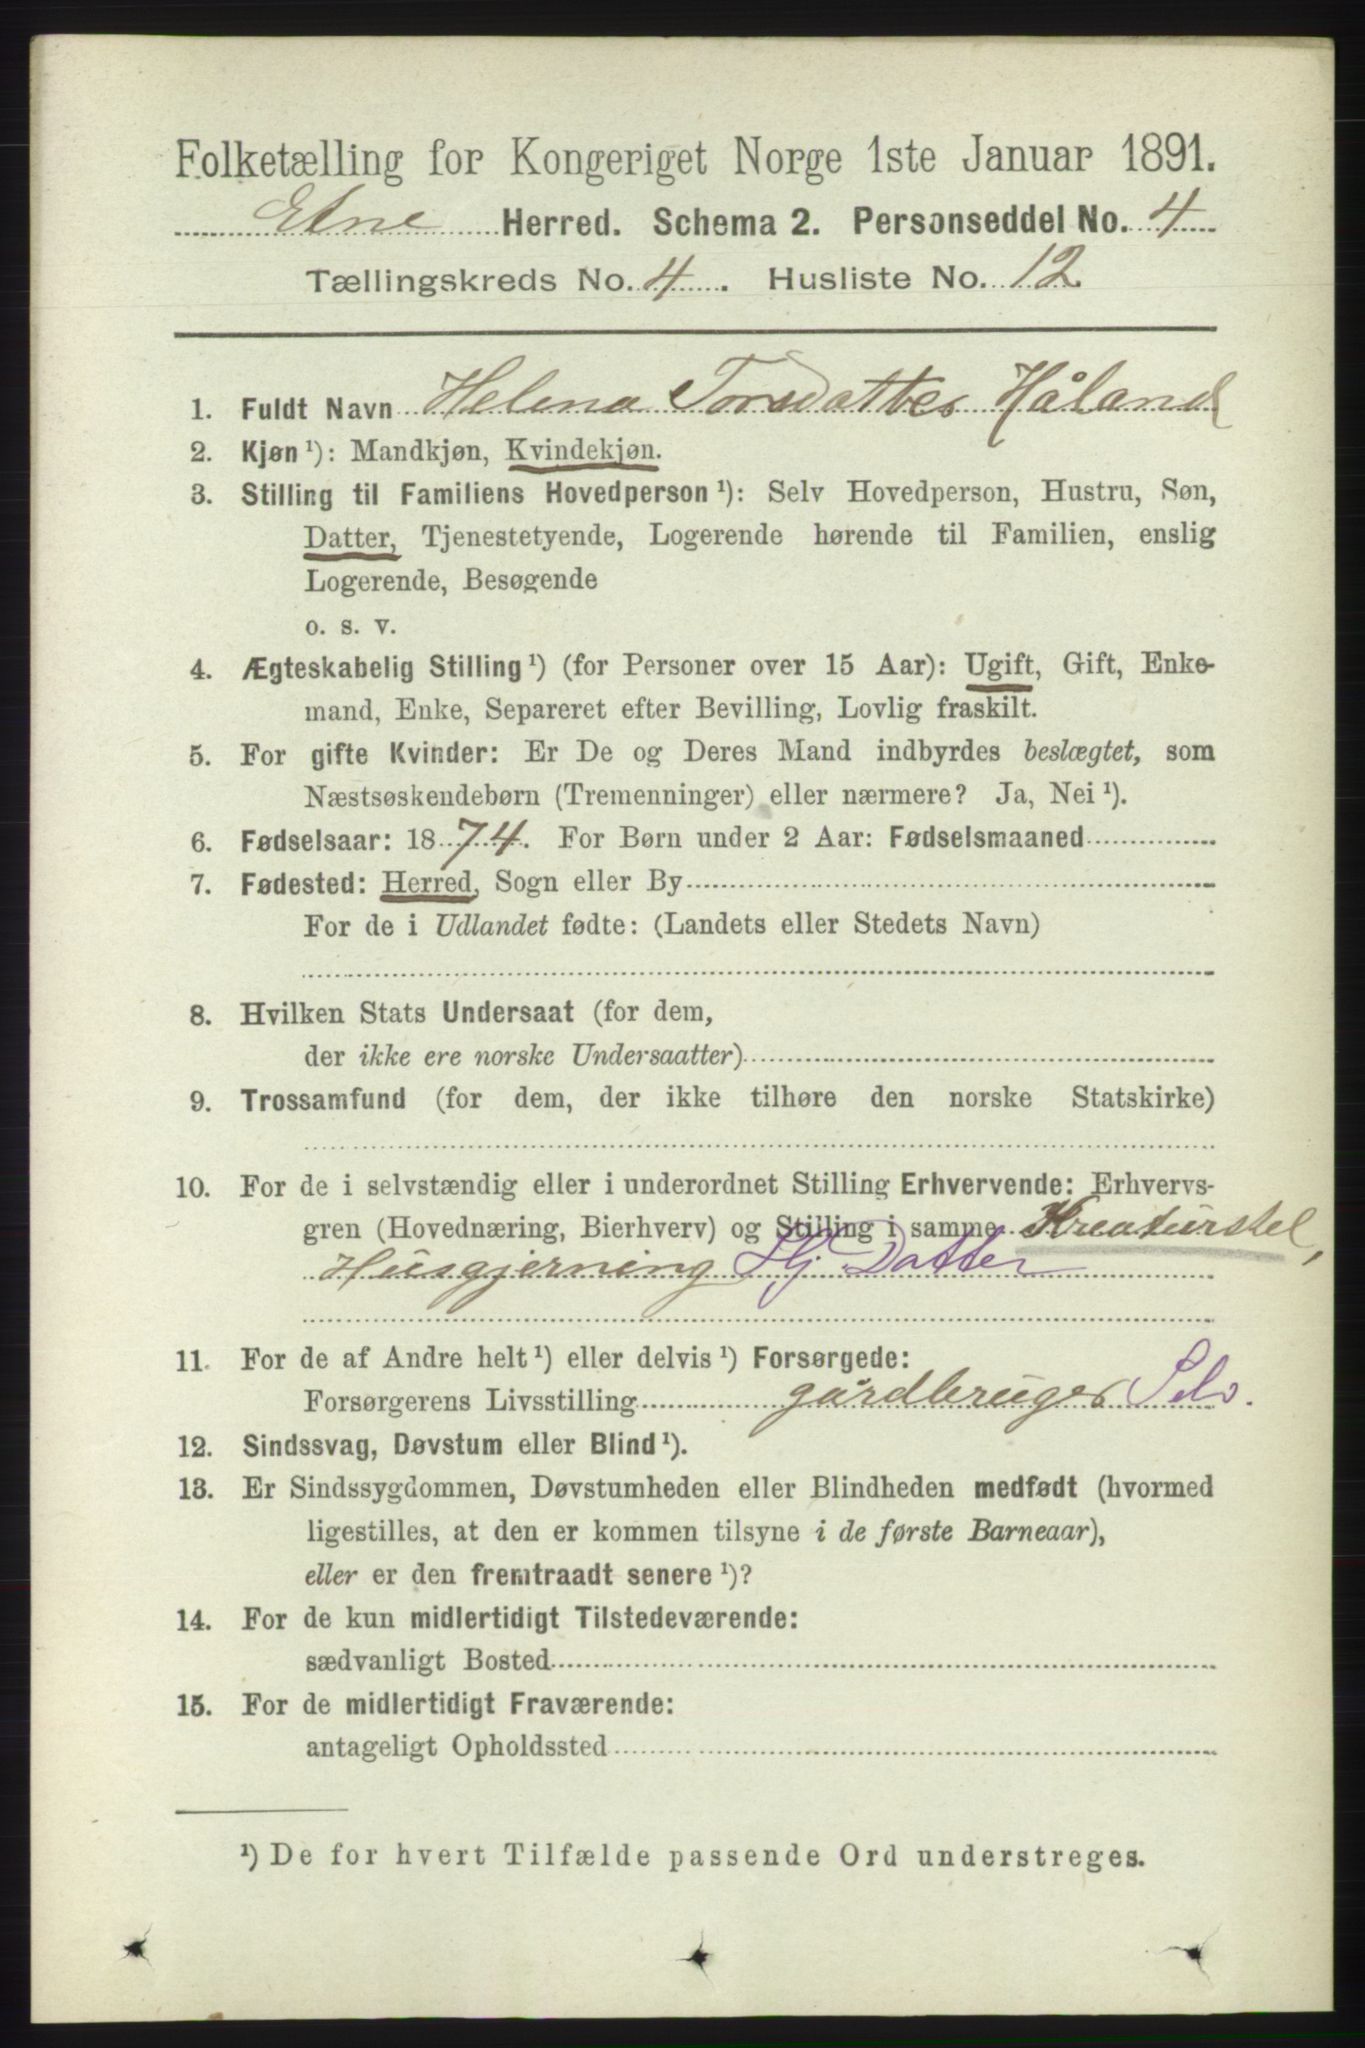 Folketælling for Kongeriget Norge 1ste Januar 1891.
Etne Herred. Schema 2. Personseddel No. 4
Tællingskreds No. 4. Husliste No. 12
1. Fuldt Navn Helena Torsdatter Håland
2. Kjøn ¹): Mandkjøn, Kvindekjøn.
3. Stilling til Familiens Hovedperson ¹): Selv Hovedperson, Hustru, Søn,
Datter, Tjenestetyende, Logerende hørende til Familien, enslig
Logerende, Besøgende
o. s. v.
4. Ægteskabelig Stilling ¹) (for Personer over 15 Aar): Ugift, Gift, Enke-
mand, Enke, Separeret efter Bevilling, Lovlig fraskilt.
5. For gifte Kvinder: Er De og Deres Mand indbyrdes beslægtet, som
Næstsøskendebørn (Tremenninger) eller nærmere? Ja, Nei ¹).
6. Fødselsaar: 1874. For Børn under 2 Aar: Fødselsmaaned
7. Fødested: Herred, Sogn eller By
For de i Udlandet fødte: (Landets eller Stedets Navn)
8. Hvilken Stats Undersaat (for dem,
der ikke ere norske Undersaatter)
9. Trossamfund (for dem, der ikke tilhøre den norske Statskirke)
10. For de i selvstændig eller i underordnet Stilling Erhvervende: Erhvervs-
gren (Hovednæring, Bierhverv) og Stilling i samme Kreaturstel,
Husgjerning Hj. Datter
11. For de af Andre helt ¹) eller delvis ¹) Forsørgede:
Forsørgerens Livsstilling gårdbruger Selv.
12. Sindssvag, Døvstum eller Blind ¹).
13. Er Sindssygdommen, Døvstumheden eller Blindheden medfødt (hvormed
ligestilles, at den er kommen tilsyne i de første Barneaar),
eller er den fremtraadt senere ¹)?
14. For de kun midlertidigt Tilstedeværende:
sædvanligt Bosted
15. For de midlertidigt Fraværende:
antageligt Opholdssted
¹) De for hvert Tilfælde passende Ord understreges.